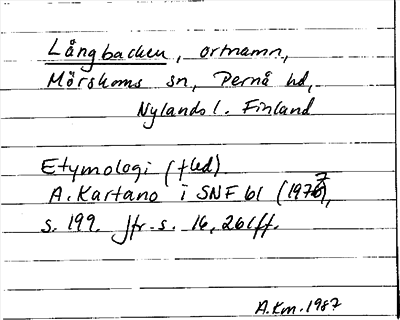 Långbacken, ortnamn,
Mörskoms sn, Pernå hd,
Nylands l. Finland
Etymologi (fled)
A. Kartano i SNF 61 (1977),
s. 199. Jfr s. 16, 261ff.
A.Km. 1987